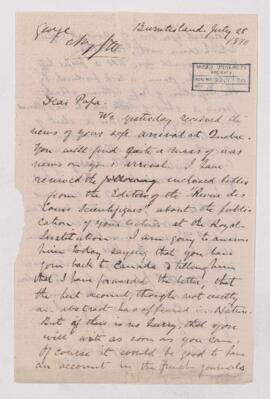 George
Burntisland July 25
1870
McGILL UNIVERSITY
ARCHIVES
Dear Papa.
We yesterday received the
news of your safe arrival at Quebec.
You will find quite a mass of
news on your arrival. I have
received the enclosed letter
from the Editor of the "Revue des
Cours Scientifiques" about the publi-
cation of your lecture at the Royal
Institution. I am going to answer
him today saying that you have
gone back to Canada & telling him
that I have forwarded the letter, that
the best account, though not exactly
an abstract has appeared in Nature.
But if there is no hurry, that you
will write as soon as you can.
Of course it would be good to have
an account in the French journals